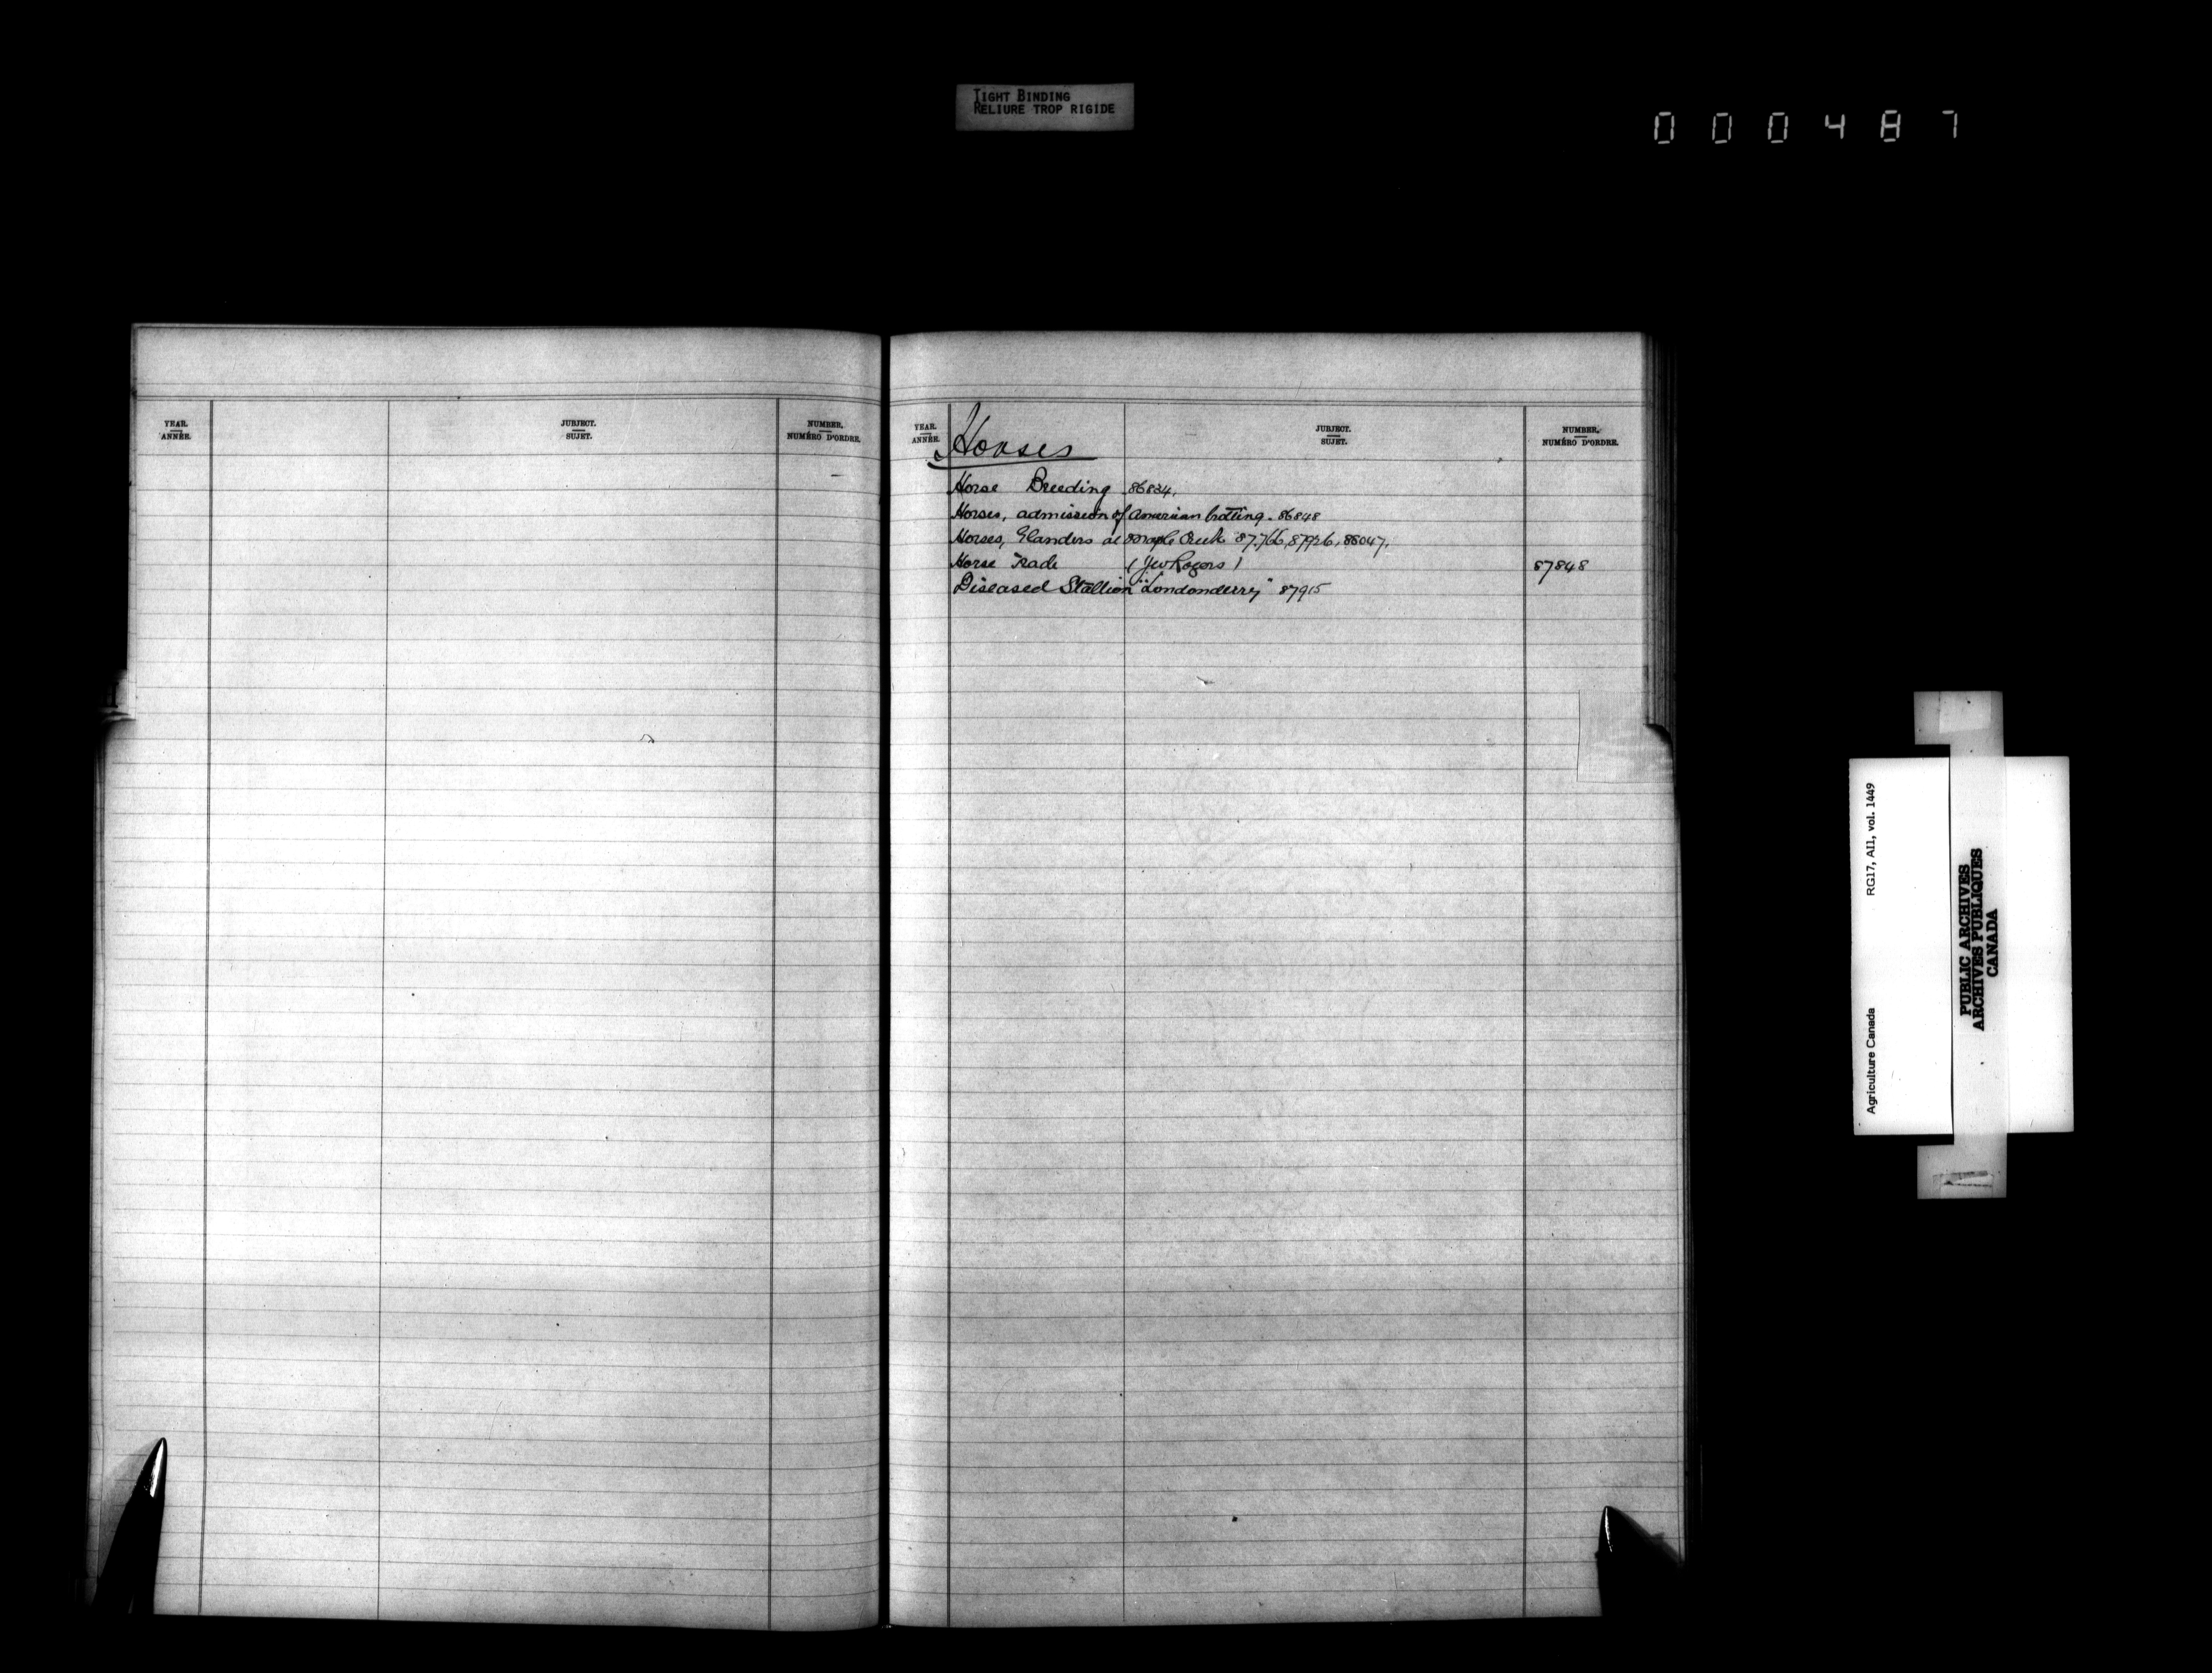 TIGHT BINDING
RELIURE TROP RIGIDE
000487
YEAR.
ANNÉE.
JUBJECT.
SUJET.
NUMBER.
NUMÉRO D'ORDRE.
YEAR.
ANNÉE.
Horses
JUBJECT.
SUJET.
NUMBER.
NUMÉRO D'ORDRE.
Horse Breeding 86834.
Horses, admission of American trotting. 86848
Horses, Glanders at Maple Creek 87.766, 87926, 88047.
Horse Trade (J W Rogers) 87848
Diseased Stallion "Londonderry" 87915
Agriculture Canada RG17, AI1, vol. 1449
PUBLIC ARCHIVES
ARCHIVES PUBLIQUES
CANADA